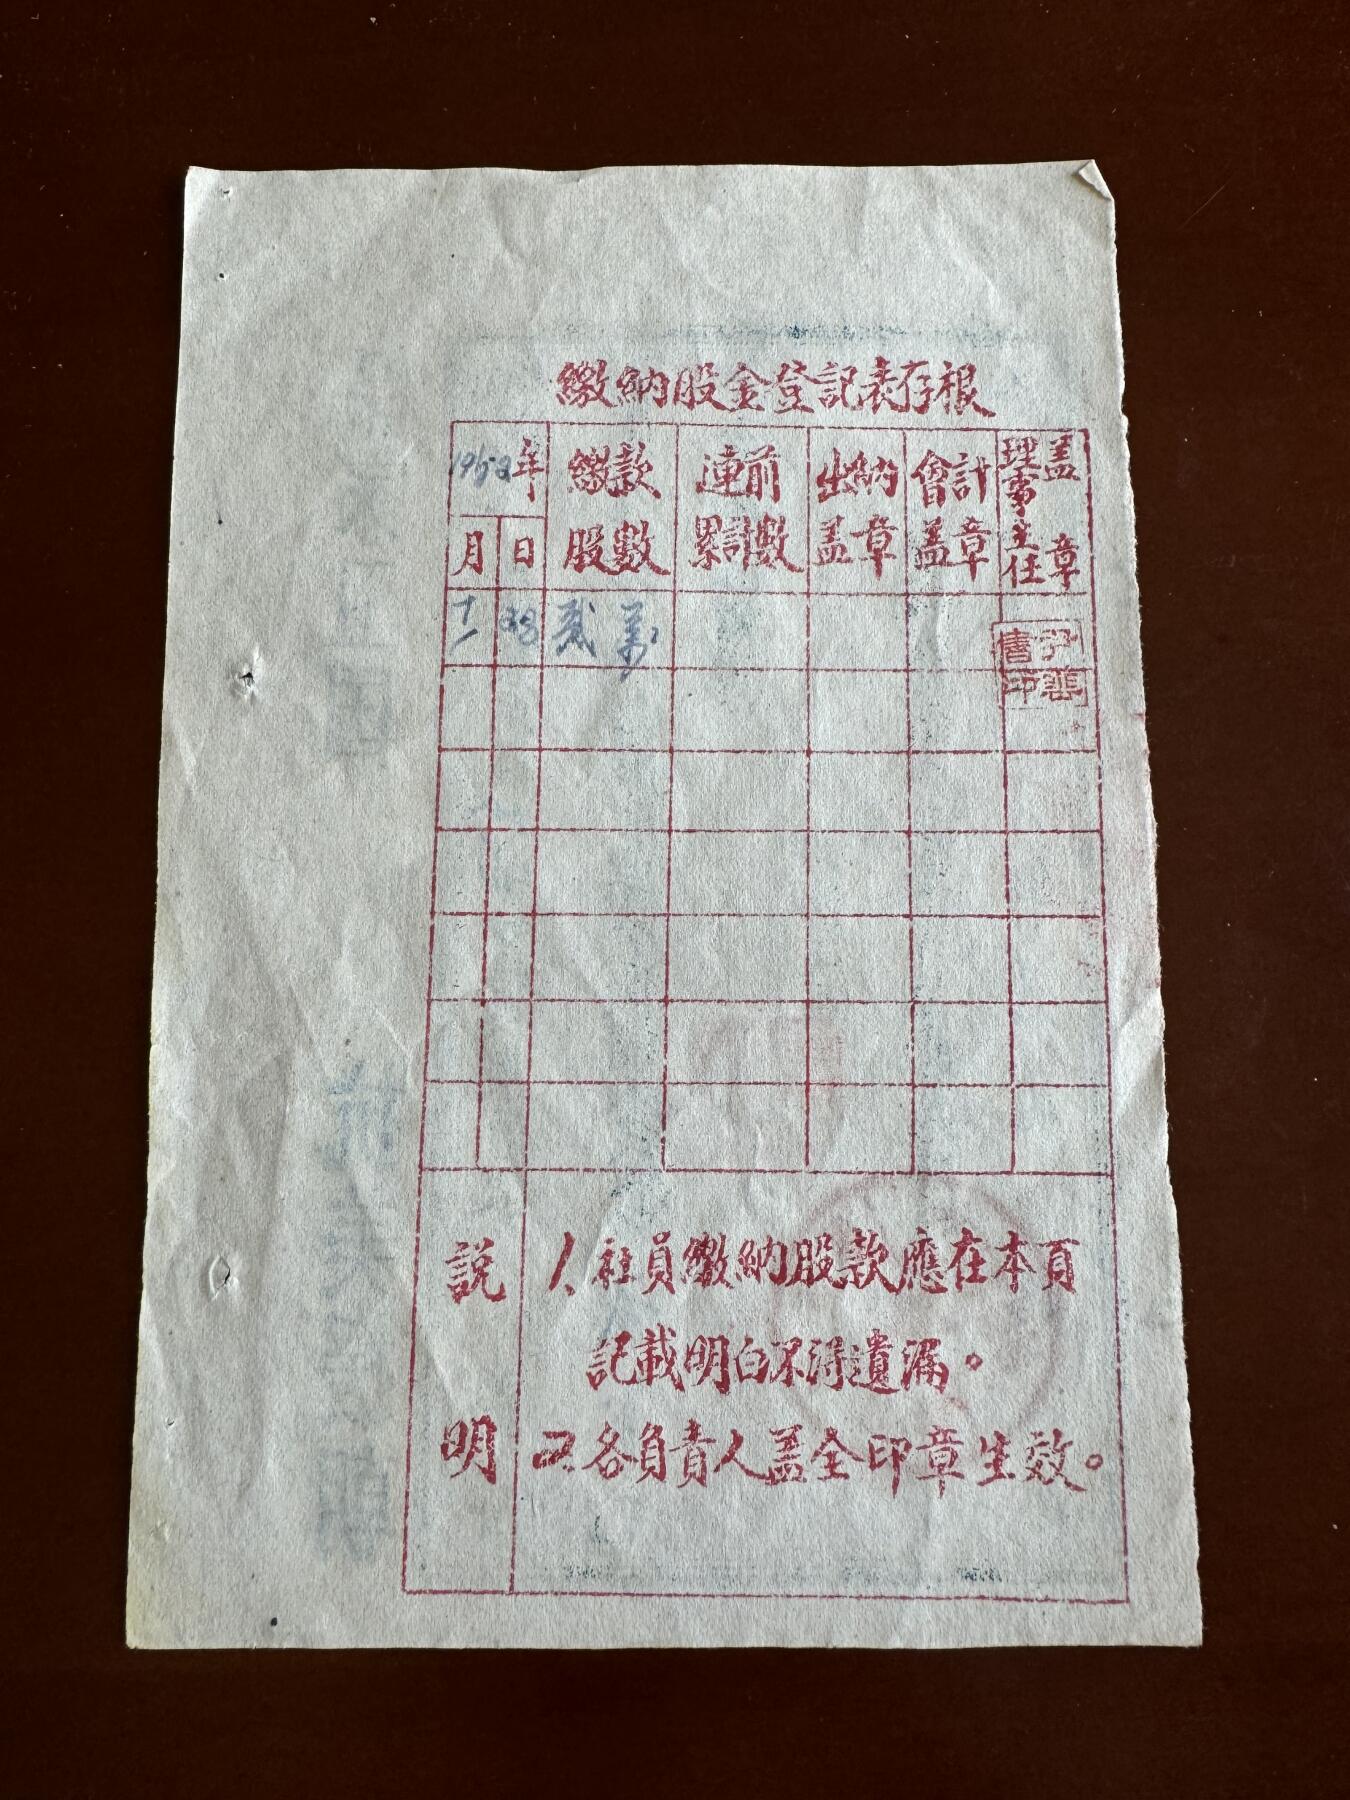 缴纳股金登記表存根
1952年
月 日
缴款股數
連前累計數
出納盖章
會計盖章
理事主任盖章
十一 28 贰萬
尹善書印
說明
1、社員缴纳股款應在本頁
記載明白不得遺漏。
2、各負責人盖全印章生效。